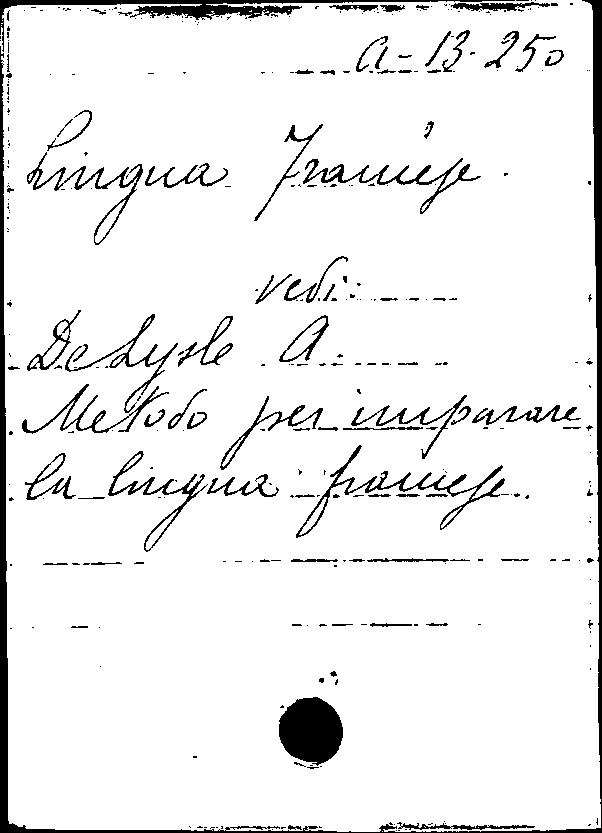 A-13-250
Lingua Francese.
vedi:
De Lysle A.
Metodo per imparare
la lingua francese.